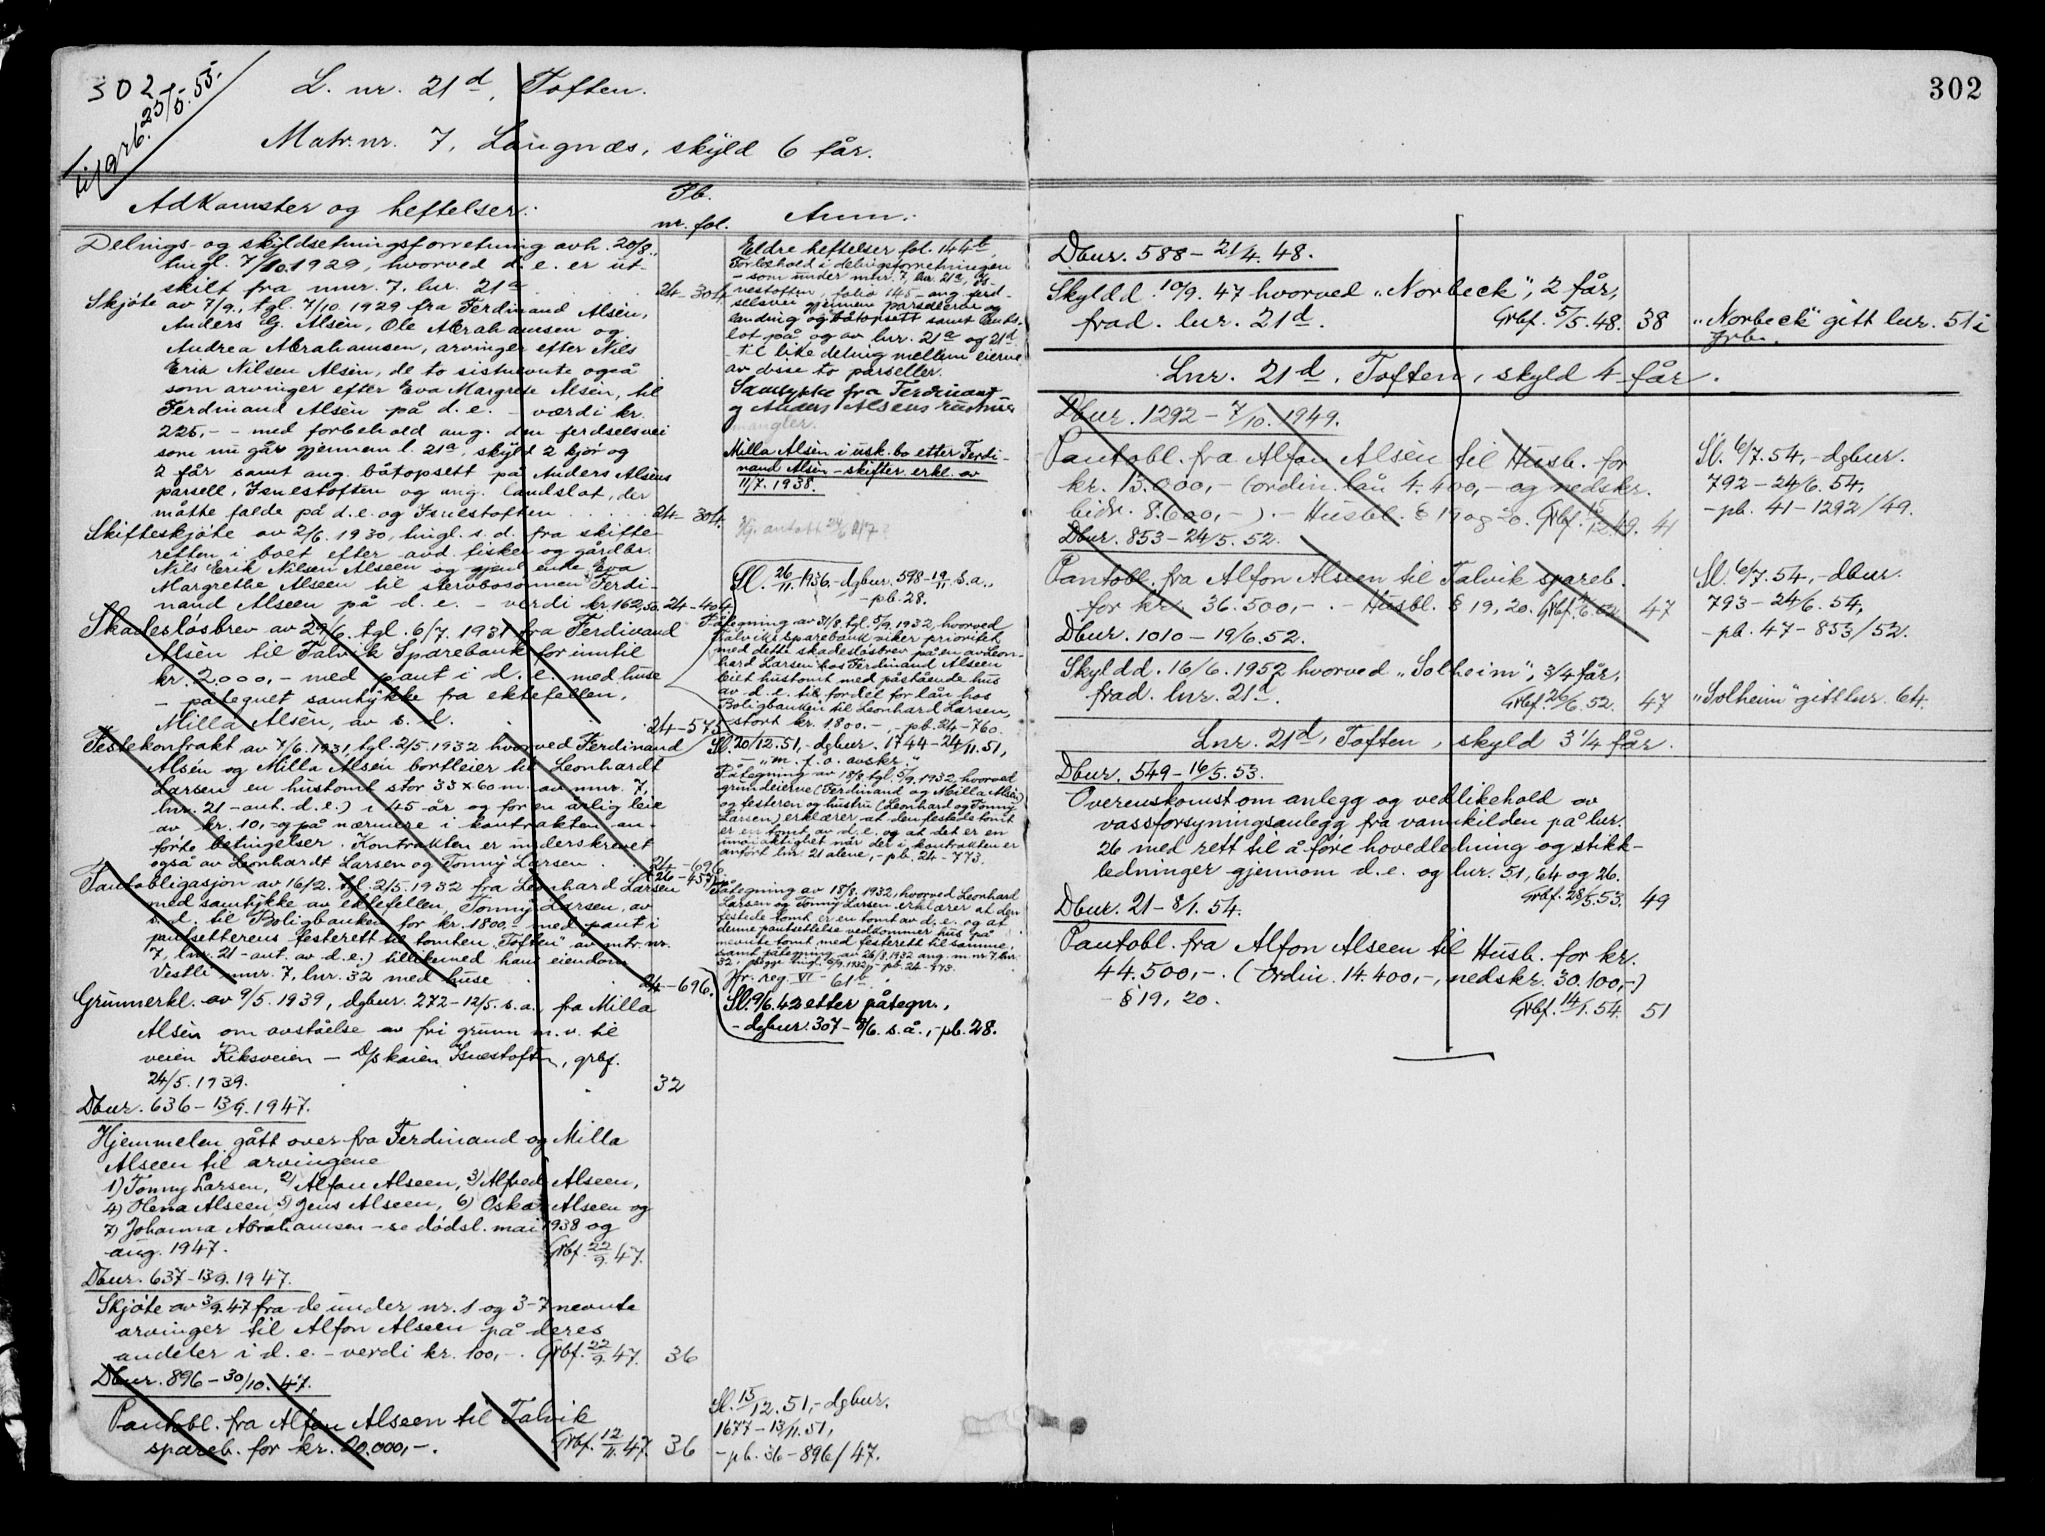 302
til grb. 25/5.55.
L. nr. 21d, Toften.
Matr. nr. 7, Langnæs, skyld 6 får.
Adkomster og heftelser:
Pb.
nr. fol.
Anm.:
Delings- og skyldsetningsforretning avh. 20/8.
tingl. 7/10.1929, hvorved d. e. er ut-
skilt fra mnr. 7, lnr. 21a
24-304
Skjöte av 7/9., tgl. 7/10 1929 fra Ferdinand Alsén,
Anders G. Alsén, Ole Abrahamsen og
Andrea Abrahamsen, arvinger efter Nils
Erik Nilsen Alsén, de to sistnevnte også
som arvinger efter Eva Margrete Alsén, til
Ferdinand Alsén på d. e. – værdi kr.
225,- – med forbehold ang. den ferdselsvei
som nu går gjennem l. 21a, skyld 2 kjør og
2 får samt ang. båtopsett på Anders Alséns
parsell, Isnestoften og ang. landslot, der
måtte falde på d. e. og Isnestoften
24-304.
Skifteskjöte av 2/6. 1930, tingl. s. d. fra skifte-
retten i boet efter avd. fisker og gårdbr.
Nils Erik Nilsen Alseen og gjenl. enke Eva
Margrethe Alseen til stervbosönnen Ferdi-
nand Alseen på d. e. – verdi kr. 162,50.
24-404.
Skadeslösbrev av 29/6. tgl. 6/7. 1931 fra Ferdinand
Alsén til Talvik Sparebank for inntil
kr. 2.000,- med pant i d. e. med huse
– påtegnet samtykke fra ektefellen,
Milla Alsén, av s. d.
24-575
Festekontrakt av 7/6.1931, tgl. 2/5.1932 hvorved Ferdinand
Alsén og Milla Alsén bortleier til Leonhardt
Larsen en hustomt stor 33 x 60 m. av mnr. 7,
lnr. 21 – ant. d. e.) i 45 år og for en årlig leie
av kr. 10,- og på nærmere i kontrakten an-
förte betingelser. Kontrakten er underskrevet
også av Leonhardt Larsen og Tonny Larsen
24-696
(26-453)
Pantobligasjon av 16/2. tgl. 2/5.1932 fra Leonhard Larsen
med samtykke av ektefellen, Tonny Larsen, av
s. d. til Boligbanken for kr. 1800,- med pant i
pantsetterens festerett til tomten "Toften" av mtr. nr.
7, lnr. 21 – ant. av d. e.) tillikemed hans eiendom
Vestli mnr. 7, lnr. 32 med huse
24-696.
Grunnerkl. av 9/5. 1939, dgbnr. 272-12/5. s. a., fra Milla
Alsén om avståelse av fri grunn m. v. til
veien Riksveien – Dpskaien Isnestoften, grbf.
24/5. 1939.
32
Dbnr. 636 – 13/9. 1947.
Hjemmelen gått over fra Ferdinand og Milla
Alseen til arvingene
1) Tonny Larsen, 2) Alfon Alseen, 3) Alfred Alseen,
4) Hena Alseen, 5) Jens Alseen, 6) Oskar Alseen og
7) Johanna Abrahamsen – se dödsl. mai 1938 og
aug. 1947.
Grbf. 22/9. 47.
Dbnr. 637 – 13/9. 1947.
Skjöte av 3/9. 47 fra de under nr. 1 og 3-7 nevnte
arvinger til Alfon Alseen på deres
andeler i d. e. – verdi kr. 100,-. Grbf. 22/9. 47.
36
Dbnr. 896 – 30/10. 47.
Pantobl. fra Alfon Alseen til Talvik
spareb. for kr. 20.000,-.
Grbf. 12/11. 47.
36
Eldre heftelser fol. 144b.
Forbehold i delingsforretningen
– som under mnr. 7 lnr. 21c, Is-
nestoften, folio 145 – ang. ferd-
selsvei gjennem parsellene og
landing og båtopsett samt lands-
lot på og av lnr. 21c og 21d
til like deling mellem eierne
av disse to parseller.
Samtykke fra Ferdinand
og Anders Alséns hustruer
mangler.
Milla Alsén i usk. bo etter Ferdi-
nand Alsén – skifter. erkl. av
11/7. 1938.
Sl. 26/11. 1936. – dgbnr. 598-19/11. s. a.,
– pb. 28.
Påtegning av 31/8. tgl. 5/9. 1932, hvorved
Talvik sparebank viker prioritet
med dette skadeslösbrev på en av Leon-
hard Larsen hos Ferdinand Alseen
leiet hustomt med påstående hus
av d. e. til fordel for lån hos
Boligbanken til Leonhard Larsen,
stort kr. 1800.-, pb. 24-760.
Sl. 20/12.51, – dgbnr. 1744 – 24/11. 51,
– "m. f. o. avskr."
Påtegning av 18/8. tgl. 5/9. 1932, hvorved
grunneierne (Ferdinand og Milla Alsén)
og festeren og hustru (Leonhard og Tonny
Larsen) erklærer at den festede tomt
er en tomt av d. e. og at det er en
unöiaktighet når der i kontrakten er
anfört lnr. 21 alene, – pb. 24-773.
Påtegning av 18/8. 1932, hvorved Leonhard
Larsen og Tonny Larsen erklærer at den
festede tomt er en tomt av d. e. og at
denne pantsettelse vedkommer hus på
nevnte tomt med festerett til samme,
samt påtegning av 26/8. 1932 ang. m. nr. 7, lnr.
32, begge tingl. 5/9. 1932, – pb. 24-773.
Jfr. reg. VI – 61
Sl. 9/6. 42 etter påtegn.,
– dgbnr. 307 – 3/6. s. å., – pb. 28.
Sl. 15/12. 51, – dgbnr.
1677 – 13/11. 51,
– pb. 36 – 896/47.
302
Dbnr. 588 – 21/4. 48.
Skyldd. 10/9. 47 hvorved "Norbeck", 2 får,
frad. lnr. 21d.
Grbf. 5/5. 48.
38
"Norbeck" gitt lnr. 51 i
grb.
Lnr. 21d, Toften, skyld 4 får.
Dbnr. 1292 – 7/10. 1949.
Pantobl. fra Alfon Alseen til Husb. for
kr. 13.000,- (ordin. lån 4.400,- og nedskr.
bidr. 8.600,-). – Husbl. § 19 og 20. Grbf. 15/12.49.
41
Sl. 6/7. 54, – dgbnr.
792 – 24/6. 54,
– pb. 41 – 1292/49.
Dbnr. 853 – 24/5. 52.
Pantobl. fra Alfon Alseen til Talvik spareb.
for kr. 36.500,-. – Husbl. § 19, 20. Grbf. 4/6. 52
47
Sl. 6/7. 54, – dbnr.
793 – 24/6. 54,
– pb. 47 – 853/52.
Dbnr. 1010 – 19/6. 52.
Skyldd. 16/6. 1952 hvorved "Solheim", 3/4 får,
frad. lnr. 21d.
Grbf. 26/6. 52.
47
"Solheim" gitt lnr. 64.
Lnr. 21d, Toften, skyld 3 1/4 får.
Dbnr. 549 – 16/5. 53.
Overenskomst om anlegg og vedlikehold av
vassforsyningsanlegg fra vannkilden på lnr.
26 med rett til å före hovedledning og stikk-
ledninger gjennom d. e. og lnr. 51, 64 og 26.
Grbf. 28/5. 53.
49
Dbnr. 21 – 8/1. 54.
Pantobl. fra Alfon Alseen til Husb. for kr.
44.500,-. (Ordin. 14.400,-, nedskr. 30.100,-)
– § 19, 20.
Grbf. 14/1. 54.
51